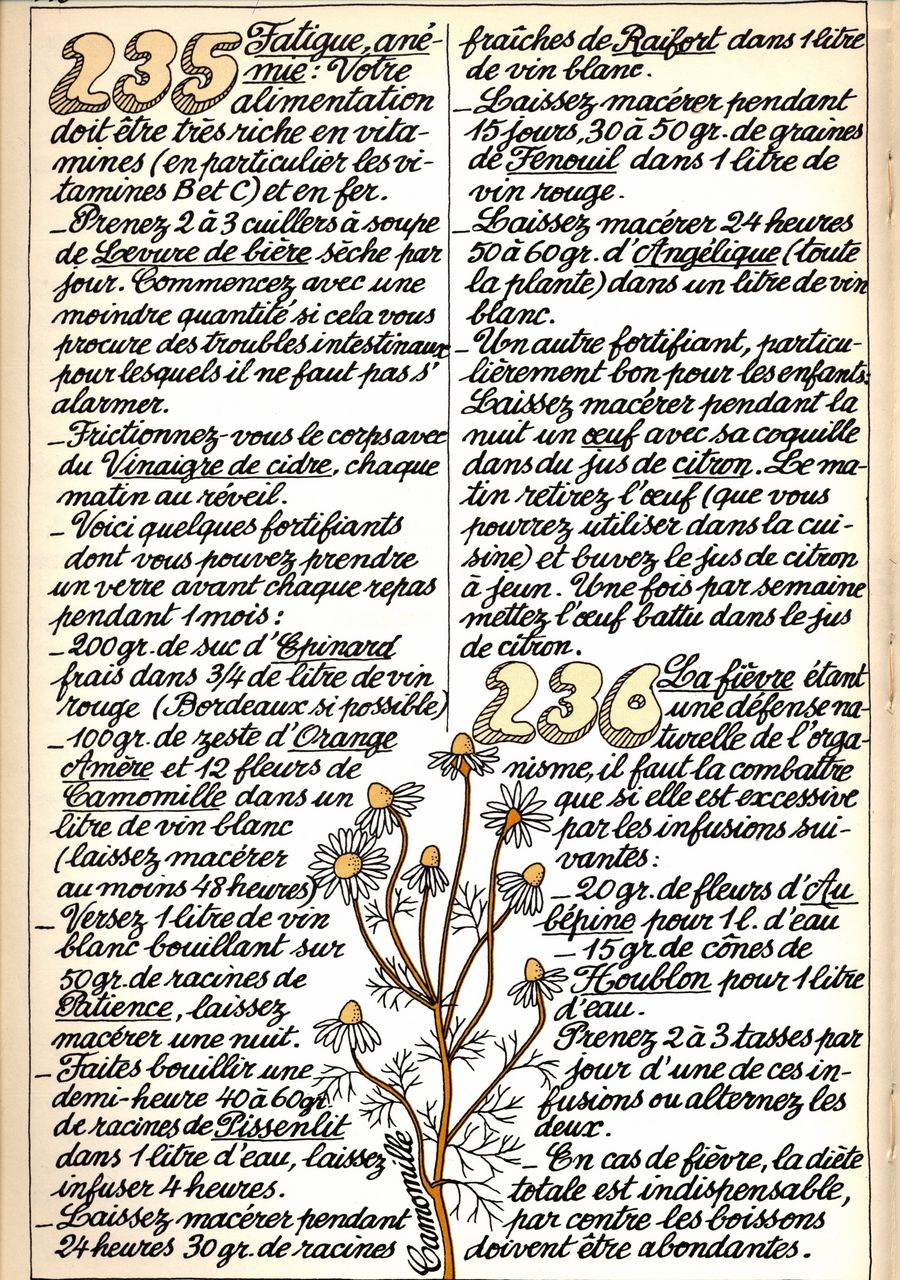 235 Fatigue, ané-
mie : Votre
alimentation
doit être très riche en vita-
mines (en particulier les vi-
tamines B et C) et en fer.
_Prenez 2 à 3 cuillers à soupe
de Levure de bière sèche par
jour. Commencez avec une
moindre quantité si cela vous
procure des troubles intestinaux
pour lesquels il ne faut pas s'
alarmer.
_Frictionnez-vous le corps avec
du Vinaigre de cidre, chaque
matin au réveil.
_ Voici quelques fortifiants
dont vous pouvez prendre
un verre avant chaque repas
pendant 1 mois :
_ 200 gr. de suc d'Epinard
frais dans 3/4 de litre de vin
rouge (Bordeaux si possible)
_ 100 gr. de zeste d'Orange
Amère et 12 fleurs de
Camomille dans un
litre de vin blanc
(laissez macérer
au moins 48 heures)
_ Versez 1 litre de vin
blanc bouillant sur
50 gr. de racines de
Patience, laissez
macérer une nuit.
_ Faites bouillir une
demi-heure 40 à 60 gr.
de racines de Pissenlit
dans 1 litre d'eau, laissez
infuser 4 heures.
_ Laissez macérer pendant
24 heures 30 gr. de racines
fraîches de Raifort dans 1 litre
de vin blanc.
_ Laissez macérer pendant
15 jours, 30 à 50 gr. de graines
de Fenouil dans 1 litre de
vin rouge.
_ Laissez macérer 24 heures
50 à 60 gr. d'Angélique (toute
la plante) dans un litre de vin
blanc.
_ Un autre fortifiant, particu-
lièrement bon pour les enfants:
Laissez macérer pendant la
nuit un œuf avec sa coquille
dans du jus de citron. Le ma-
tin retirez l'œuf (que vous
pourrez utiliser dans la cui-
sine) et buvez le jus de citron
à jeun. Une fois par semaine
mettez l'œuf battu dans le jus
de citron.
236 La fièvre étant
une défense na-
turelle de l'orga-
nisme, il faut la combattre
que si elle est excessive
par les infusions sui-
vantes :
_ 20 gr. de fleurs d'Au
bépine pour 1 l. d'eau
_ 15 gr. de cônes de
Houblon pour 1 litre
d'eau.
Prenez 2 à 3 tasses par
jour d'une de ces in-
fusions ou alternez les
deux.
_ En cas de fièvre, la diète
totale est indispensable,
par contre les boissons
doivent être abondantes.
Camomille